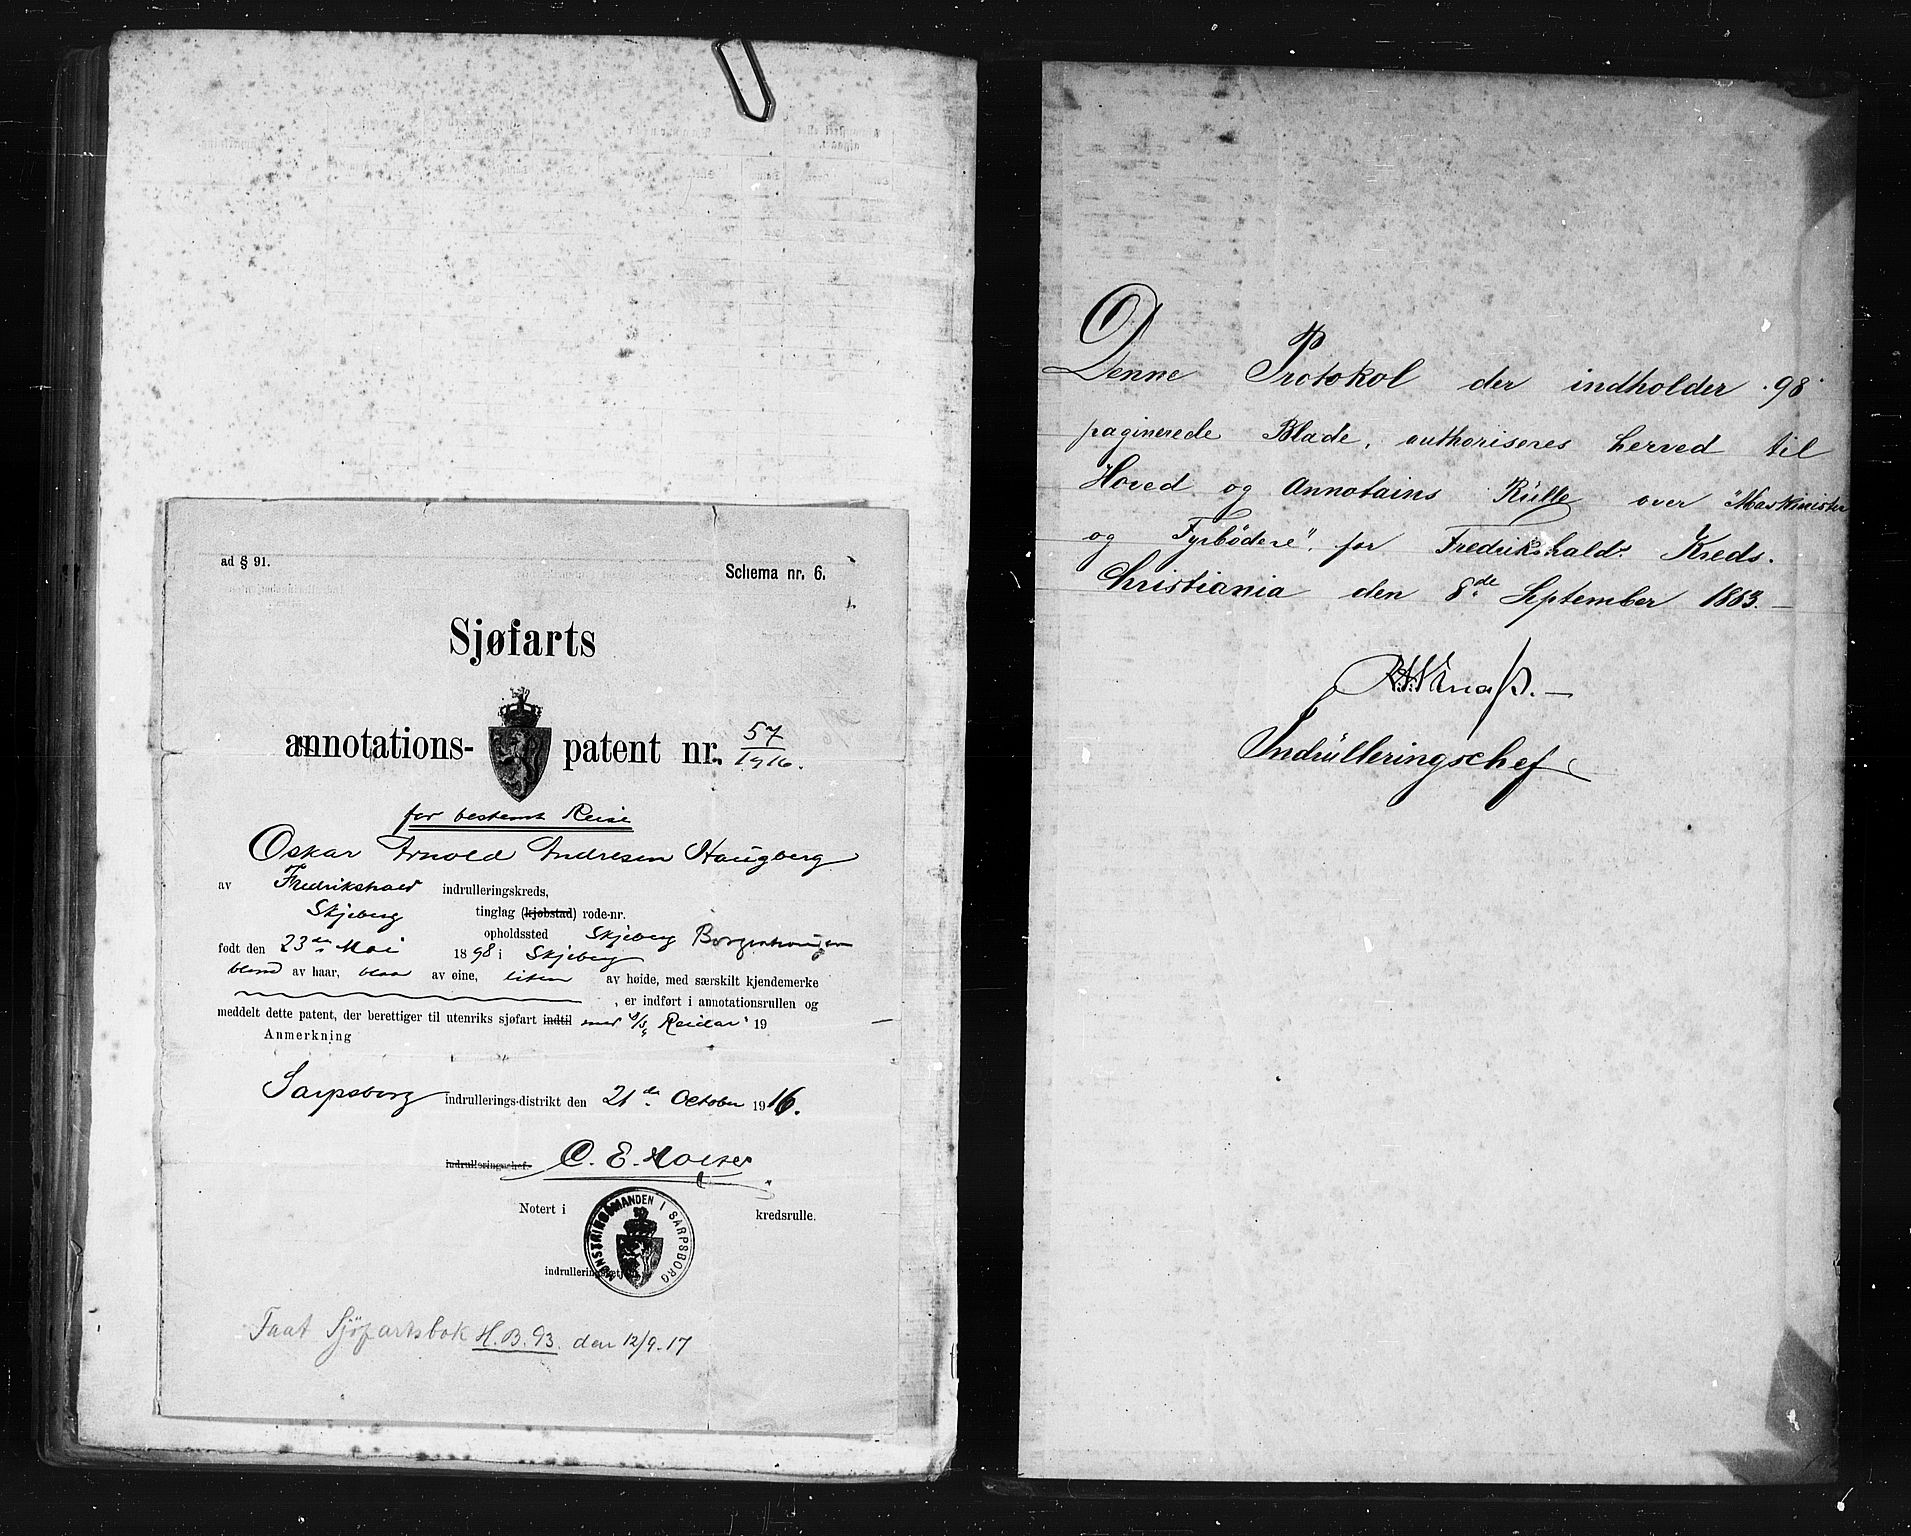 ad § 91.
Schema nr. 6.
Sjøfarts
annotations- patent nr. 57/1916.
for bestemt Reise
Oskar Arnold Andresen Haugberg
av Fredrikshald indrulleringskreds,
Skjeberg tinglag (kjøbstad) rode-nr.
opholdssted Skjeberg Borgenhaugen
født den 23de Mai 1898 i Skjeberg
blond av haar, blaa av øine, liten av høide, med særskilt kjendemerke
, er indført i annotationsrullen og
meddelt dette patent, der berettiger til utenriks sjøfart indtil med S/S "Reidar" 19 —
Anmerkning
Sarpsborg indrullerings-distrikt den 21de October 1916.
indrulleringschef. C. E.
Notert i kredsrulle.
MØNSTRINGSMANDEN I SARPSBORG
Faat Sjöfartsbok H.B. 93. den 12/9.17
Denne Protokol der indholder 98
paginerede Blade, authoriseres herved til
Hoved og Annotains Rülle over "Maskinister
og Fyrbödere" for Fredrikshalds Kreds.
Christiania den 8de September 1883. —
Indrülleringschef